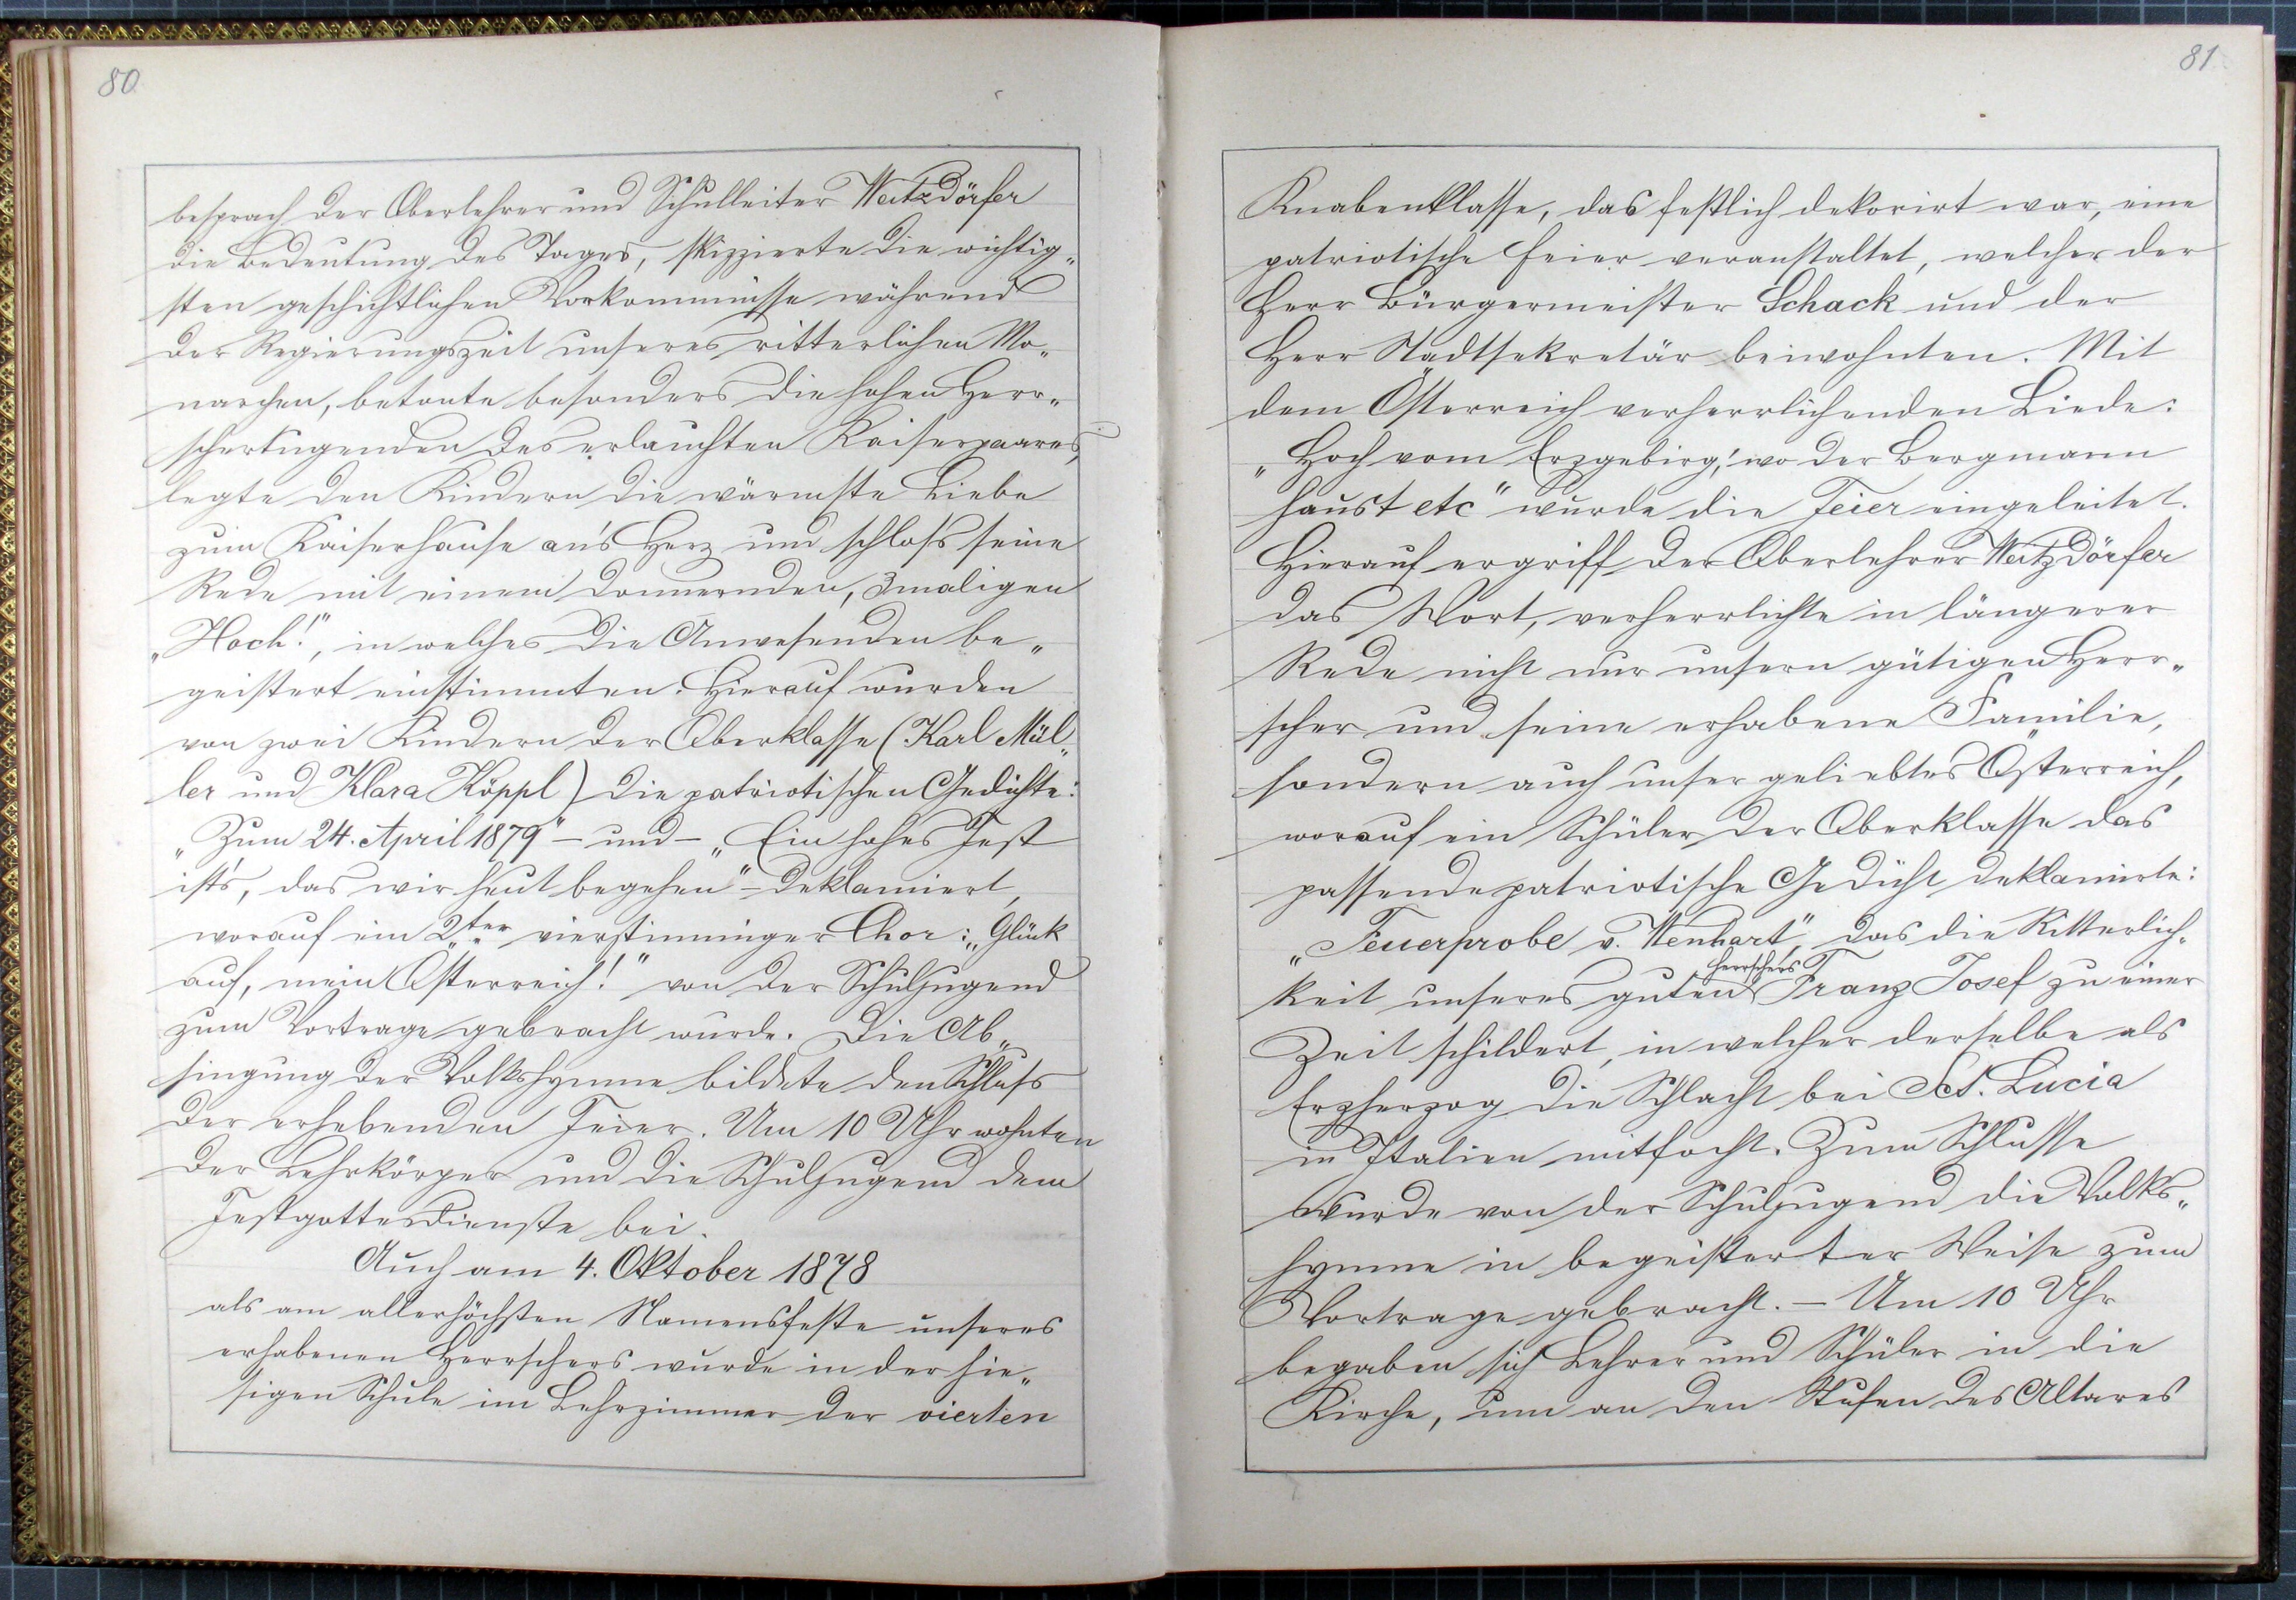 80
besprach der Oberlehrer und Schulleiter Weitzdörfer
die Bedeutung des Tages, skizzierte die wichtig„
sten geschichtlichen Vorkommnisse während
der Regierungszeit unseres ritterlichen Mo„
narchen, betonte besonders die hohen Herr„
schertugenden des erlauchten Kaiserpaares,
legte den Kindern die wärmste Liebe
zum Kaiserhause an's Herz und schloß seine
Rede mit einem donnernden, 3maligen
„Hoch!", in welches die Anwesenden be„
geistert einstimmten. Hierauf wurden
von zwei Kindern der Oberklasse (Karl Mül„
ler und Klara Köppl) die patriotischen Gedichte:
„Zum 24. April 1879" – und – „Ein hohes Fest
ist's, das wir heut begehen" – deklamiert,
worauf ein 2ter vierstimmiger Chor: „Glück
auf, mein Österreich!" von der Schuljugend
zum Vortrage gebracht wurde. Die Ab„
singung der Volkshymne bildete den Schluß
der erhebenden Feier. Um 10 Uhr wohnten
der Lehrkörper und die Schuljugend dem
Festgottesdienste bei.
Auch am 4. Oktober 1878
als am allerhöchsten Namensfeste unseres
erhabenen Herrschers wurde in der hie„
sigen Schule im Lehrzimmer der vierten
81
Knabenklasse, das festlich dekorirt war, eine
patriotische Feier veranstaltet, welcher der
Herr Bürgermeister Schack und der
Herr Stadtsekretär beiwohnten. Mit
dem Österreich verherrlichenden Liede:
„Hoch vom Erzgebirg', wo der Bergmann
haust etc" wurde die Feier eingeleitet.
Hierauf ergriff der Oberlehrer Weitzdörfer
das Wort, verherrlichte in längerer
Rede nicht nur unsern gütigen Herr„
scher und seine erhabene Familie,
sondern auch unser geliebtes Österreich,
worauf ein Schüler der Oberklasse das
passende patriotische Gedicht deklamirte:
„Feuerprobe v. Wenhart", das die Ritterlich„
keit unseres guten Herrschers Franz Josef zu einer
Zeit schildert, in welcher derselbe als
Erzherzog die Schlacht bei Sct. Lucia
in Italien mitfocht. Zum Schlusse
wurde von der Schuljugend die Volks„
hymne in begeisterter Weise zum
Vortrage gebracht. – Um 10 Uhr
begaben sich Lehrer und Schüler in die
Kirche, um an den Stufen des Altares